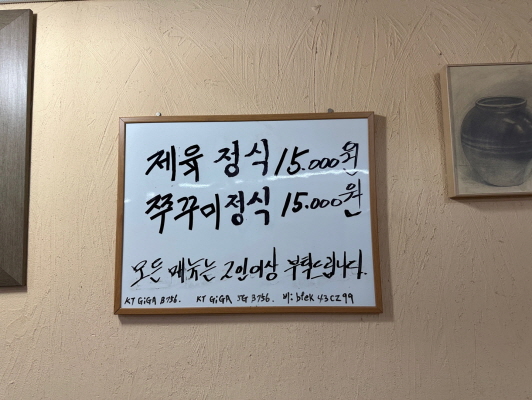 제육 정식 15.000원
쭈꾸미정식 15.000원
모든 메뉴는 2인이상 부탁드립니다.
KT GiGA B756. KT GiGA 5G B756. 비: bfek43cz99